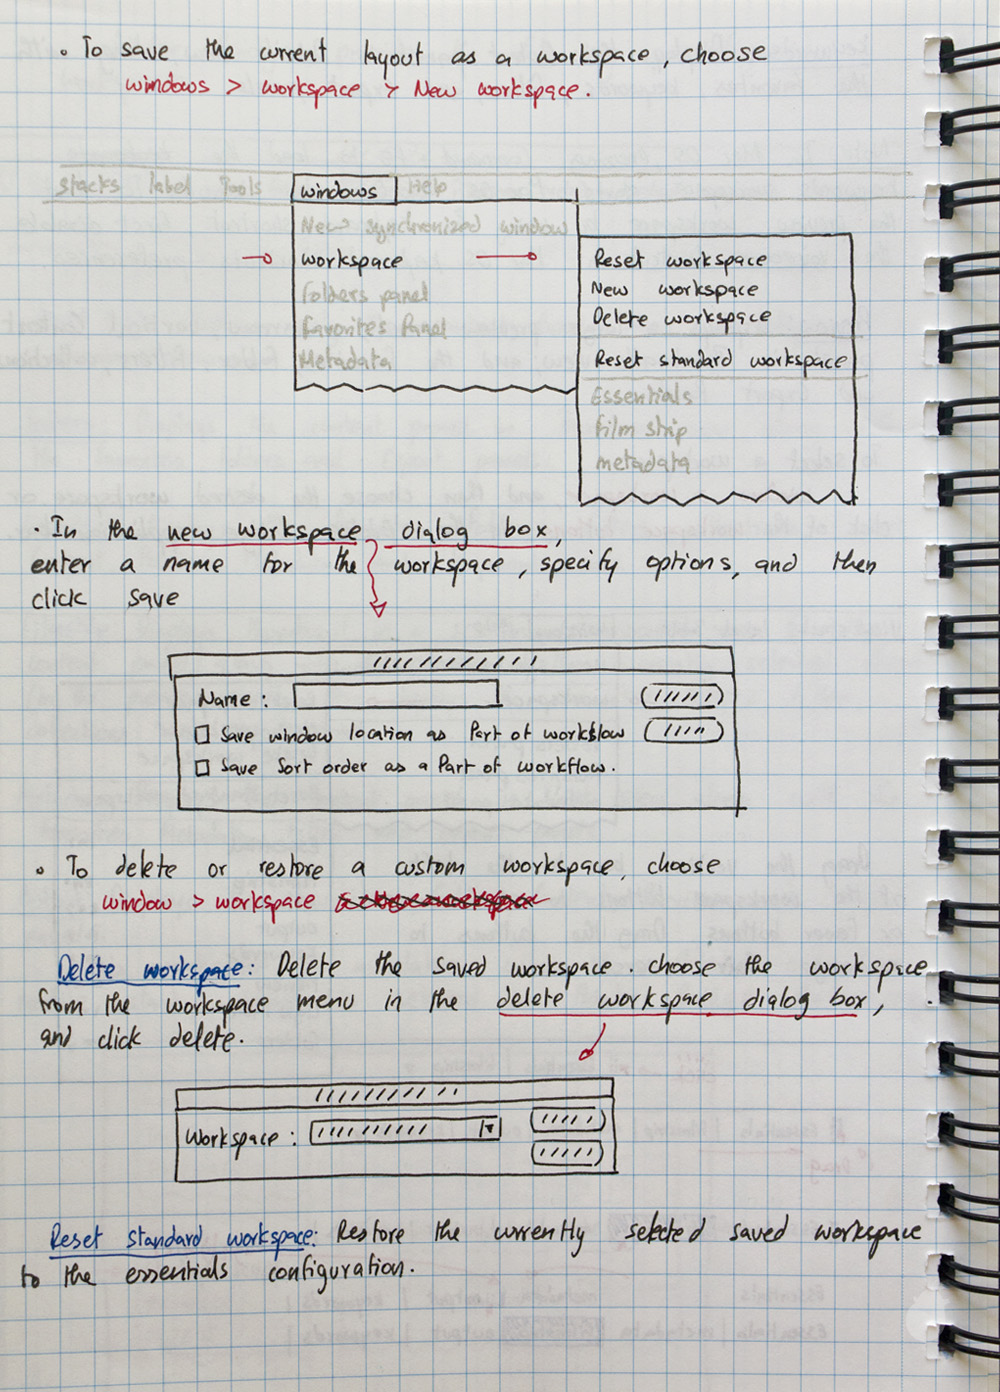 • To save the current layout as a workspace, choose
windows > workspace > New workspace.
stacks label Tools windows Help
New synchronized window
workspace
Folders panel
Favorites Panel
Metadata
Reset workspace
New workspace
Delete workspace
Reset standard workspace
Essentials
film strip
metadata
• In the new workspace dialog box,
enter a name for the workspace, specify options, and then
click save
Name:
Save window location as Part of workflow
Save Sort order as a Part of workflow.
• To delete or restore a custom workspace, choose
window > workspace
Delete workspace: Delete the saved workspace. choose the workspace
from the workspace menu in the delete workspace dialog box,
and click delete.
Workspace:
Reset standard workspace: Restore the currently selected saved workspace
to the essentials configuration.